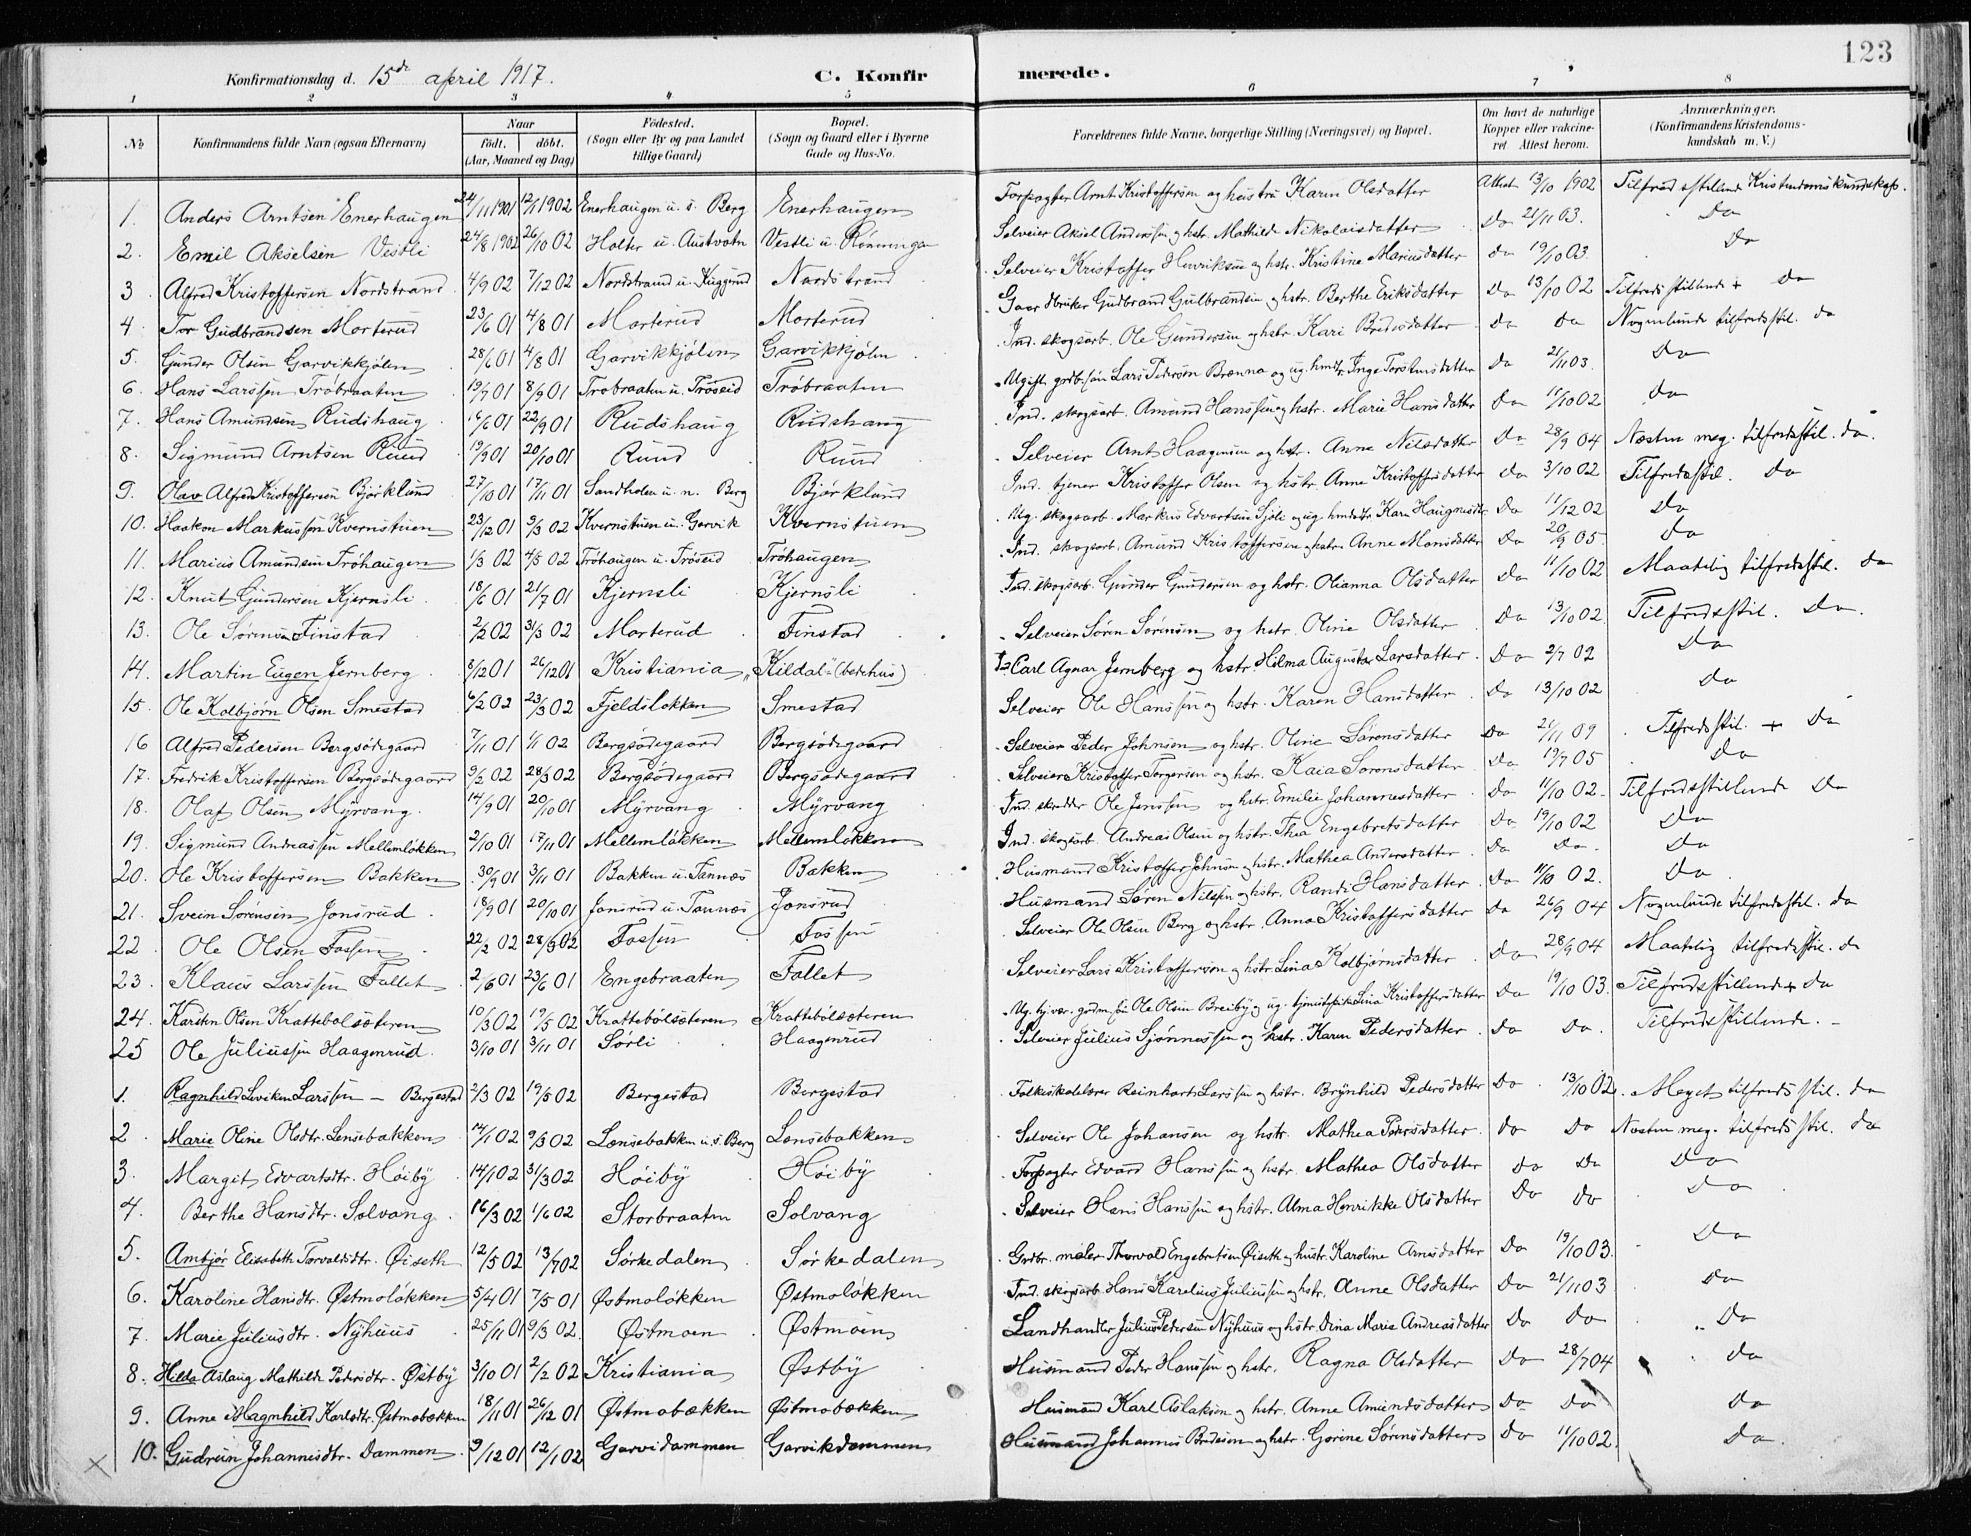 123
Konfirmationsdag d. 15de april 1917. C. Konfirmerede.
1 2 3 4 5 6 7 8
No Konfirmandens fulde Navn (ogsaa Efternavn) Naar født. døbt. (Aar, Maaned og Dag) Fødested. (Sogn eller By og paa Landet tillige Gaard) Bopæl. (Sogn og Gaard eller i Byerne Gade og Hus-No. Forældrenes fulde Navne, borgerlige Stilling (Næringsvei) og Bopæl. Om havt de naturlige Kopper eller vakcineret. Attest herom. Anmærkninger. (Konfirmandens Kristendomskundskab m. V.)
1. Anders Arntsen Enerhaugen 24/11 1901 12/1 1902 Enerhaugen u. s. Berg Enerhaugen Forpagter Arnt Kristoffersen og hustru Karen Olsdatter Attest 13/10 1902 Tilfredsstillende Kristendomskundskap.
2. Emil Akselsen Vestli 24/8 1902 26/10 02 Holter u. Austvatn Vestli u. Rönningen Selveier Aksel Anderssen og hstr. Mathilde Nikolaisdatter Do 21/11 03. Do
3. Alfred Kristoffersen Nordstrand 4/9 02 7/12 02 Nordstrand u. Kuggerud Nordstrand Selveier Kristoffer Henriksen og hstr. Kristine Mariusdatter Do 19/10 03. Do
4. Tor Gudbrandsen Morterud 23/6 01 4/8 01 Morterud Morterud Gaardbruker Gudbrand Gulbrandsen og hstr. Berthe Eriksdatter Do 13/10 02 Tilfredsstillende + Do
5. Gunder Olsen Garvikkjølen 28/6 01 4/8 01 Garvikkjølen Garvikkjølen Ind. skogsarb. Ole Gundersen og hstr. Kari Bredesdatter Do Do Nogenlunde tilfredsstil. do
6. Hans Larssen Tröbraaten 19/7 01 8/9 01 Tröbraaten u. Tröseid Tröbraaten Ugift grdb.søn Lars Pedersen Brænna og ug. hmdtr. Inge Torstensdatter Do 21/11 03. Do
7. Hans Amundsen Rudshaug 16/6 01 22/9 01 Rudshaug Rudshaug Ind. skogsarb. Amund Hanssen og hstr. Marie Hansdatter Do 11/10 02 Do
8. Sigmund Arntsen Ruud 19/9 01 20/10 01 Ruud Ruud Selveier Arnt Haagensen og hstr. Anne Nilsdatter Do 28/9 04 Næsten meg. tilfredsstil. do.
9. Olav Alfred Kristoffersen Bjørklund 27/10 01 17/11 01 Sandholen u. n. Berg Bjørklund Ind. tjener Kristoffer Olsen og hstr. Anne Kristoffersdatter Do 3/10 02 Tilfredsstil. Do
10. Haakon Markussen Kvernstuen 23/12 01 9/3 02 Kvernstuen u. Garvik Kvernstuen Ug. skogsarb. Markus Edvartsen Sjöli og ug. hmdtr. Kari Haugensdtr Do 11/12 02 Do
11. Marius Amundsen Tröhaugen 1/3 02 4/5 02 Tröhaugen u. Tröseid Tröhaugen Ind. skogsarb. Amund Kristoffersen og hstr. Anne Monsdatter Do 20/9 05 Do
12. Knut Gundersen Kjernsli 18/6 01 21/7 01 Kjernsli Kjernsli Ind. skogsarb. Gunder Gundersen og hstr. Olianna Olsdatter Do 11/10 02 Maatelig tilfredsstil. Do
13. Ole Sørensen Finstad 2/2 02 31/3 02 Morterud Finstad Selveier Søren Sørensen og hstr. Oline Olsdatter Do 13/10 02 Tilfredsstil. Do.
14. Martin Eugen Jernberg 8/12 01 26/12 01 Kristiania "Kildal" (bedehus) Carl Agnar Jernberg og hstr. Hilma Augusta Larsdatter Do 2/7 02 Do
15. Ole Kolbjørn Olsen Smestad 6/2 02 23/3 02 Fjeldsløkken Smestad Selveier Ole Hanssen og hstr. Karen Hansdatter Do 13/10 02 Do
16 Alfred Pedersen Bergsødegaard 7/11 01 1/1 02 Bergsødegaard Bergsødegaard Selveier Peder Johnsen og hstr. Oline Sørensdatter Do 21/11 09 Tilfredsstil. + Do
17. Fredrik Kristoffersen Bergsødegaard 9/2 02 28/3 02 Bergsødegaard Bergsødegaard Selveier Kristoffer Torgersen og hstr. Kaia Sorensdatter Do 19/7 05 Do
18. Olaf Olsen Myrvang 14/9 01 20/10 01 Myrvang Myrvang Ind. skrædder Ole Jenssen og hstr. Emilie Johannesdatter Do 11/10 02. Tilfredsstillende Do
19. Sigmund Andreassen Mellemløkken 2/10 01 17/11 01 Mellemløkken Mellemløkken Ind. skogsarb. Andreas Olsen og hstr. Thea Engebretsdatter Do 19/10 02 Do
20. Ole Kristoffersen Bakken 30/9 01 3/11 01 Bakken u. Tannæs Bakken Husmand Kristoffer Johnsen og hstr. Mathea Andersdatter Do Do. Do
21. Svein Sørensen Jonsrud 18/9 01 20/10 01 Jonsrud u. Tannæs Jonsrud Husmand Søren Nilssen og hstr. Randi Hansdatter Do 11/10 02. Do
22 Ole Olsen Fossen 22/2 02 28/3 02 Fossen Fossen Selveier Ole Olsen Berg og hstr. Anna Kristoffersdatter Do 26/9 04 Nogenlunde tilfredsstil. do
23. Klaus Larssen Fallet 2/6 01 23/6 01 Engebraaten Fallet Selveier Lars Kristoffersen og hstr. Lina Kolbjørnsdatter Do 28/9 04 Maatelig tilfredsstil. do
24. Karsten Olsen Krattebølsæteren 10/3 02 19/5 02 Krattebölsæteren Krattebölsæteren Ole Olsen Breiby og ug. tjenestepike Lina Kristoffersdatter Do 19/10 03. Tilfredsstillende + Do
25 Ole Juliussen Haagenrud 3/10 01 3/11 01 Sørli Haagenrud Selveier Julius Sjønnessen og hstr. Karen Pedersdatter Do Do. Tilfredsstillende. –
1. Ragnhild Leviken Larssen – Bergestad 2/3 02 19/5 02 Bergestad Bergestad Folkeskolelærer Reinhart Larssen og hstr. Brynhild Pedersdatter Do 13/10 02. Meget tilfredsstil. do
2. Marie Oline Olsdtr. Lensebakken 14/1 02 9/3 02 Lensebakken u. s. Berg Lensebakken Selveier Ole Johansen og hstr. Mathea Pedersdatter Do Do Næsten meg. tilfredsstil. do
3. Margit Edvartsdtr. Høiby 14/1 02 31/3 02 Høiby Høiby Forpagter Edvard Hanssen og hstr. Mathea Olsdatter Do Do Do
4. Berthe Hansdtr. Solvang 16/3 02 1/6 02 Storbraaten Solvang Selveier Hans Hanssen og hstr. Alma Henrikke Olsdatter Do Do Do
5. Ambjør Elisabeth Torvaldsdtr. Øiseth 12/5 02 13/7 02 Sørkedalen Sørkedalen Grdbr. maler Thorvald Engebretsen Øiseth og hustr. Karoline Arnesdatter Do 19/10 03. Do
6. Karoline Hansdtr. Østmoløkken 5/4 01 7/5 01 Østmoløkken Østmoløkken Ind. skogsarb. Hans Karelius Juliussen og hstr. Anne Olsdatter Do 21/11 03 Do
7. Marie Juliusdtr. Nyhuus 25/11 01 9/3 02. Østmoen Østmoen Landhandler Julius Pedersen Nyhuus og hstr. Dina Marie Andreasdatter Do Do Do
8. Hilda Aslaug Mathilde Pedersdtr. Østby 3/10 01 2/2 02 Kristiania Østby Husmand Peder Hanssen og hstr. Ragna Olsdatter Do 28/7 04 Do
9. Anne Magnhild Karlsdtr. Østmobækken 18/11 01 26/12 01 Østmobækken Østmobækken Husmand Karl Aslaksen og hstr. Anne Amundsdatter Do Do Do
10. Gudrun Johannesdtr. Dammen 9/12 01 12/1 02 Garvidammen Garvikdammen Husmand Johannes Bredesen og hstr. Gorine Sørensdatter Do 11/10 02. Do.